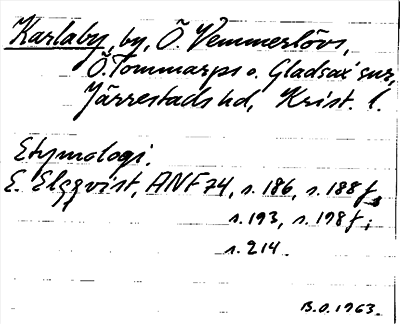 Karlaby, by, Ö. Vemmerlövs,
Ö. Tommarps o. Gladsax snr,
Järrestads hd, Krist. l.
Etymologi.
E. Elgqvist, ANF 74, s. 186, s. 188 f,
s. 193, s. 198 f;
s. 214.
B.O. 1963.